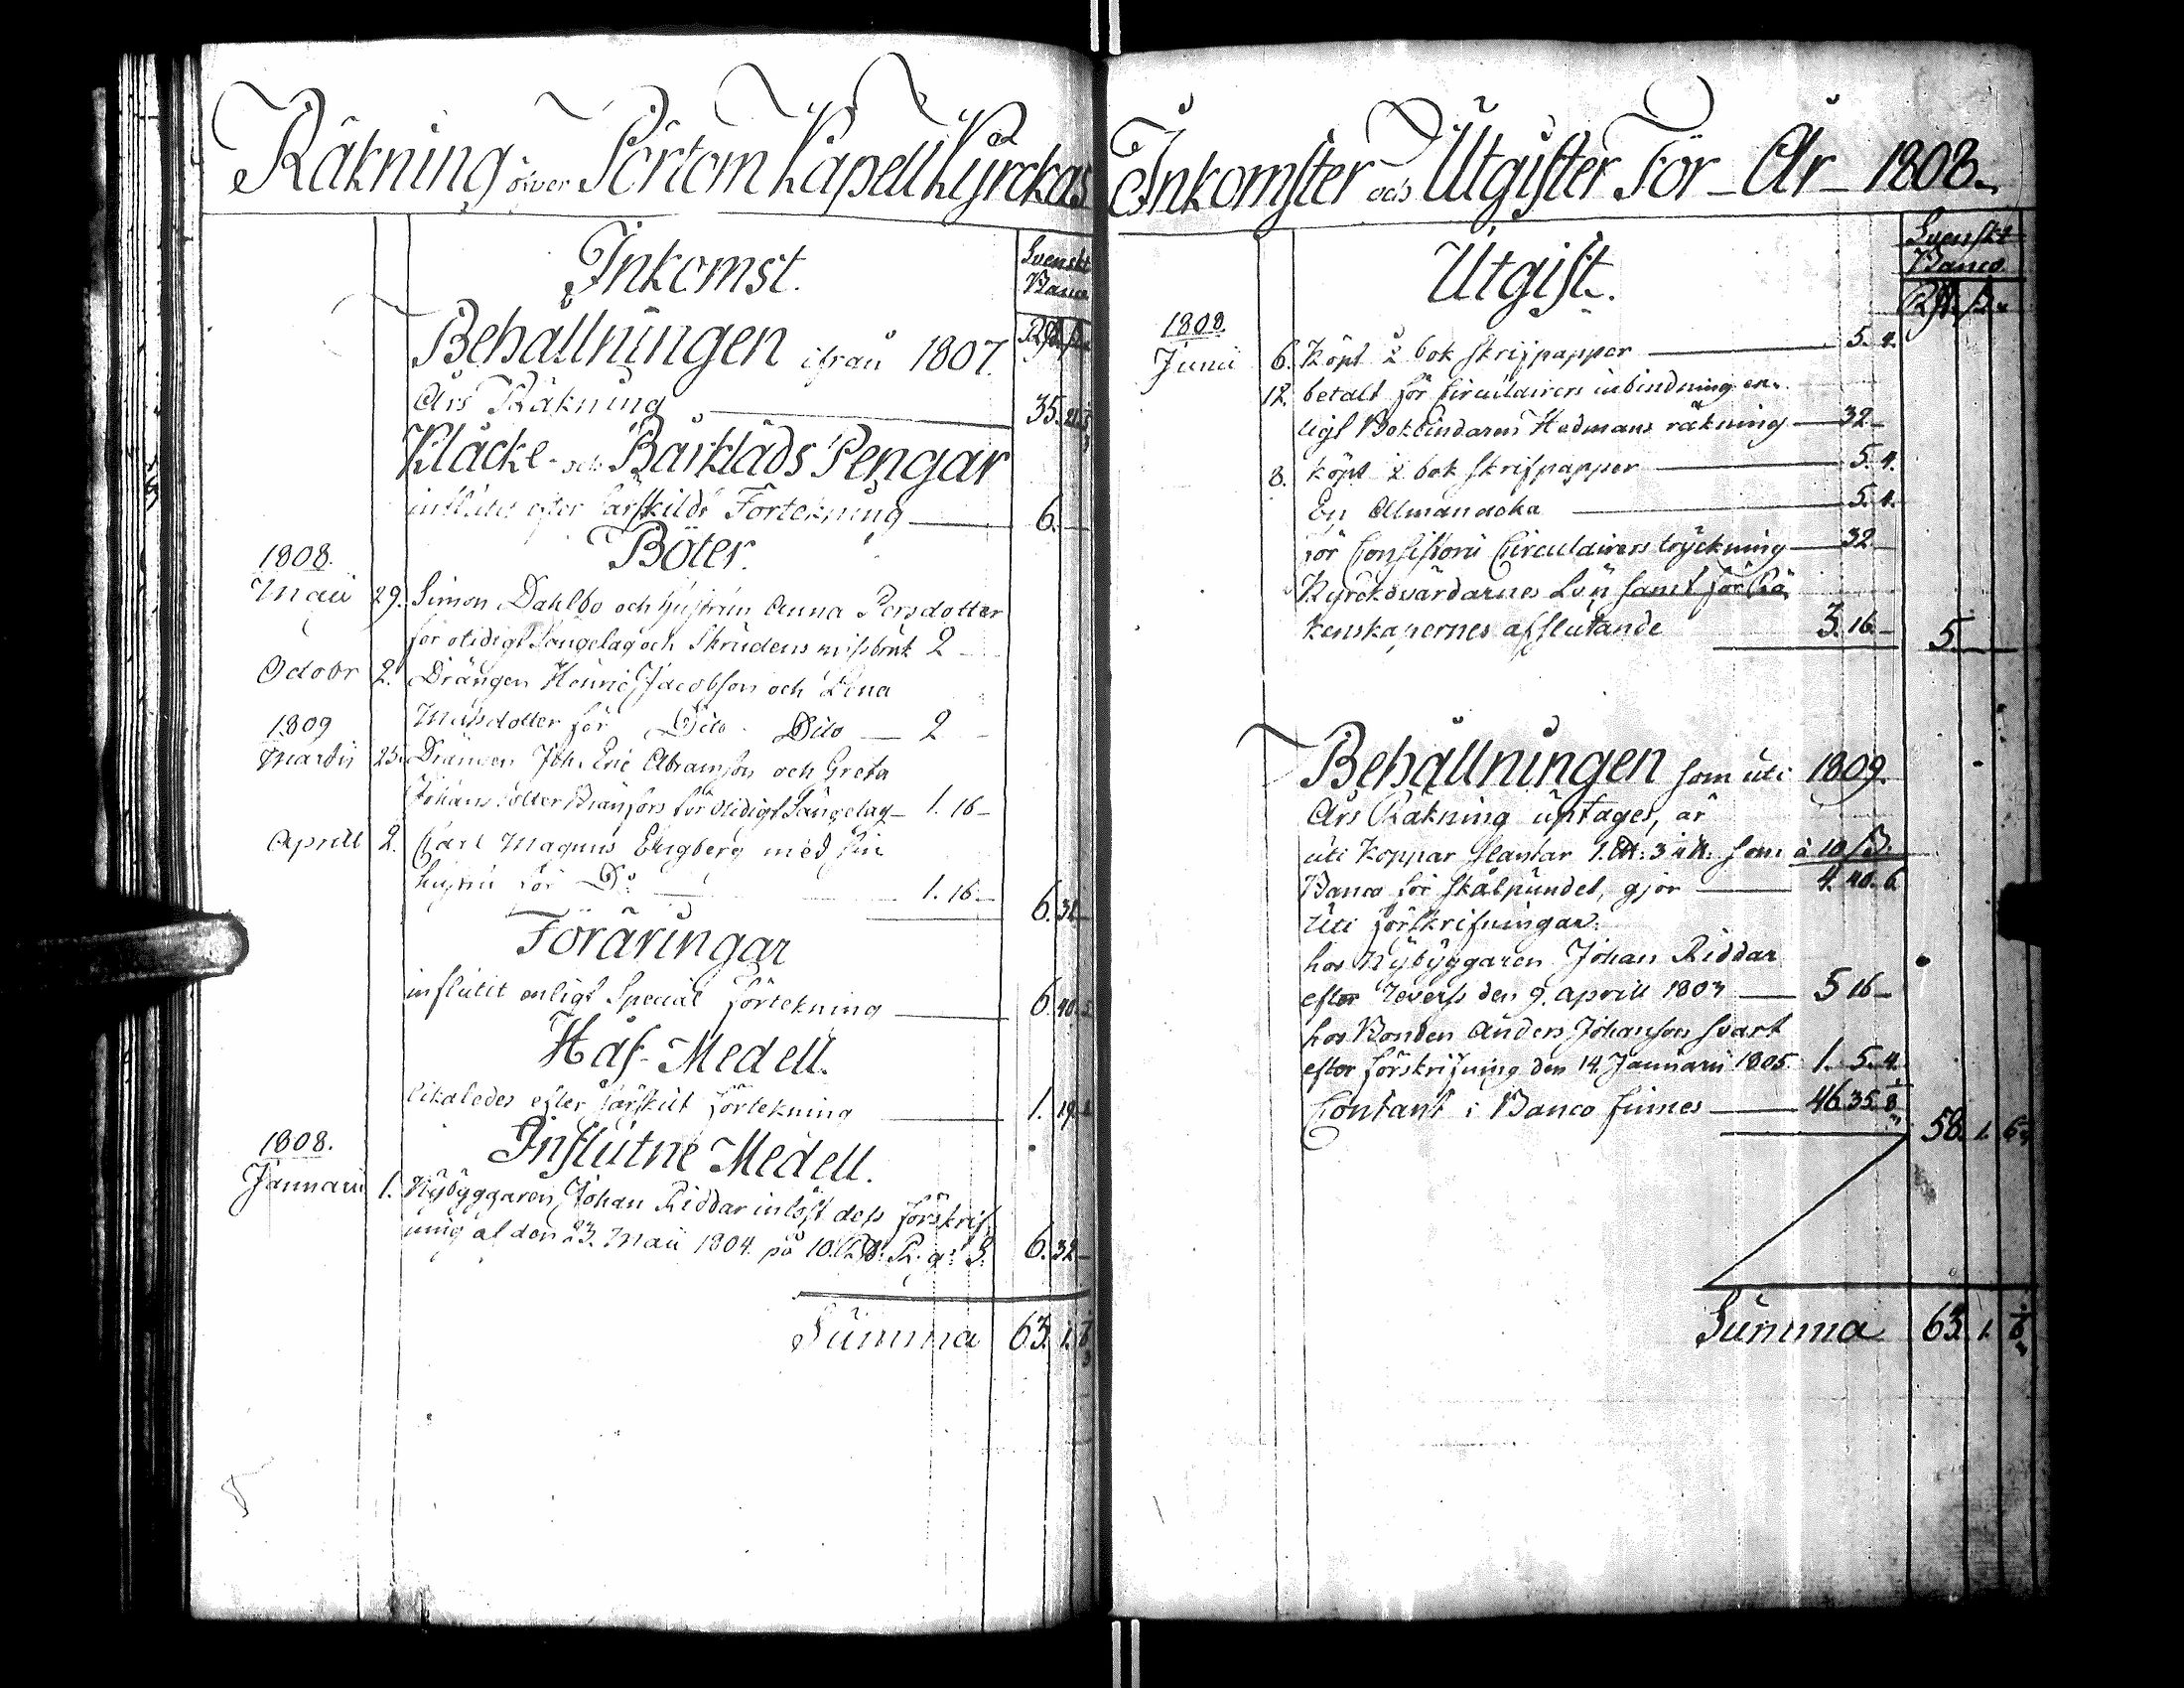 Räkning öfver Pörtom Kapell Kyrckas
Inkomst.
Svenskt
Banco
Behållningen ifrån 1807.
Års Räkning 35.
Klåcke- och Bårklåds Pengar
influtit efter särskildt Förtekning 6.
Böter.
1808.
Maii 29. Simon Dahlbo och hustrun Anna Persdotter
för otidigt Sängelag och Skrudens missbruk 2
Octobr 2. Drängen Henric Jacobsson och Lena
1809 Matsdotter för Dito Dito 2
Martii 25. Drängen Joh. Eric Abramsson och Greta
Johansdotter för otidigt Sängelag 1. 16
Aprill 2. Carl Magnus Engberg med sin
hustru för Do 1. 16 6. 32
Föräringar
influtit enligt Special Förtekning 6. 40.
Håf-Medell.
likaledes efter särskilt Förtekning 1. 19.
Influtne Medell.
1808.
Januarii 1. Nybyggaren Johan Riddar inlöst dess förskrif
ning af den 23. Maii 1804. på 10. R. gs S. 6. 32
Summa 63. 1.
Inkomster och Utgifter För År 1808.
Utgift.
Svenskt
Banco.
1808.
Junii 6. Köpt 2 bok skrifpapper 5. 4.
12. betalt för Circulairers inbindning en-
ligt Bokbindaren Hedmans räkning 32
8. Köpt 2 bok skrifpapper 5. 4.
En Almanacka 5. 4.
För Consistorii Circulairers tryckning 32
Kyrckovärdarnes Lön samt för Rä
kenskapernes afslutande 3. 16 5.
Behållningen som uti 1809.
Års Räkning uptages, är
uti Koppar slantar 1. som à 10 ß.
Banco för skålpundet, gjör 4. 40. 6
Uti förskrifningar.
hos Nybyggaren Johan Riddar
efter Reverss den 9. Aprill 1803 5 16
hos Bonden Anders Johansson Svart
efter förskrifning den 14. Januarii 1805. 1. 5. 4.
Contant i Banco finnes 46 35. 8
58. 1.
Summa 63. 1.